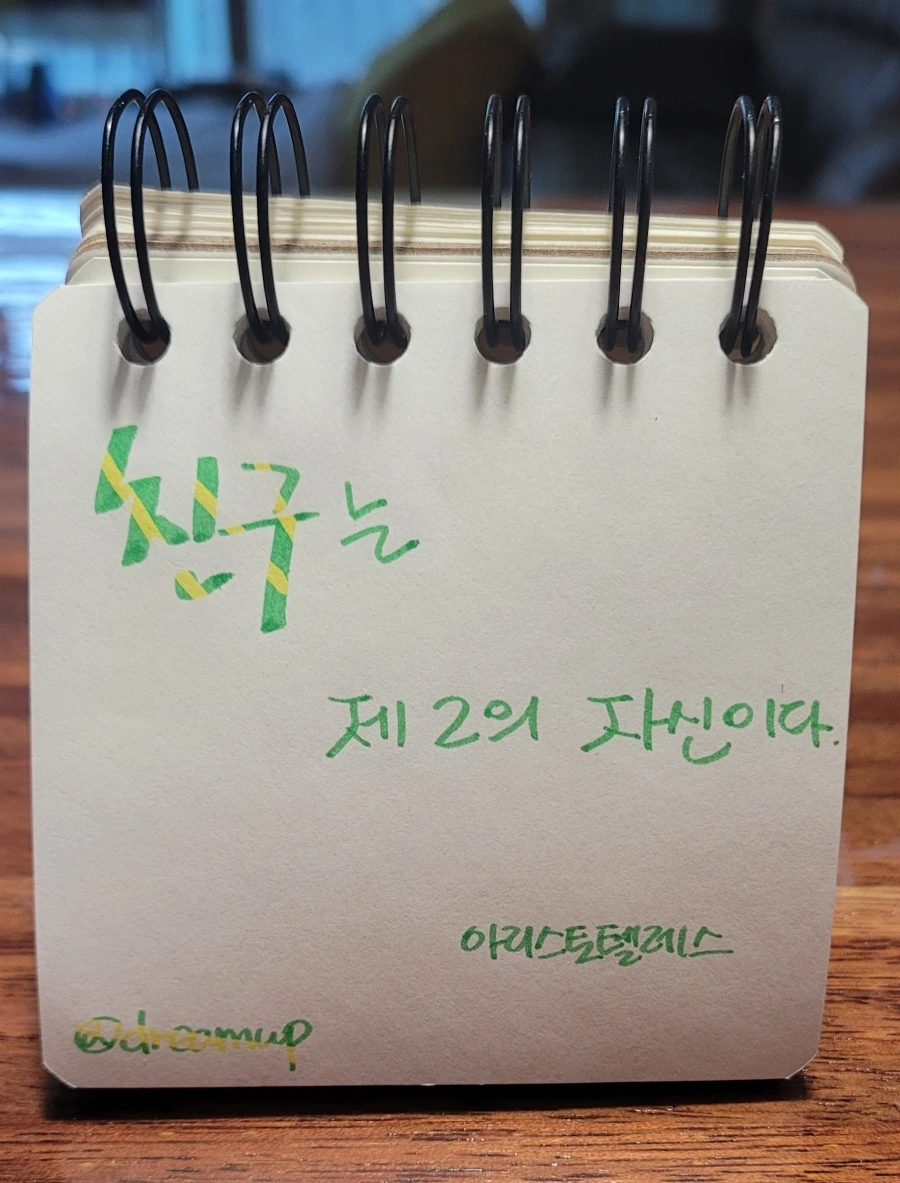 친구는
제 2의 자신이다.
아리스토텔레스
@dreamup